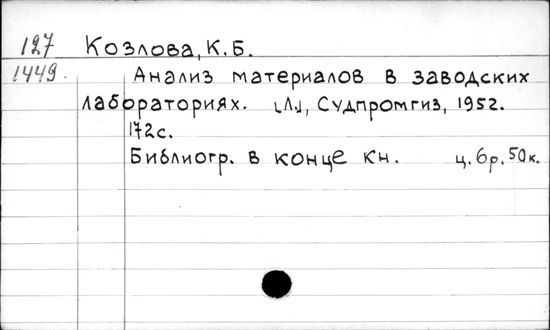 127 Козлова, К.Б.
1449. Анализ материалов в заводских
лабораториях. [Л.], Судпромгиз, 1952.
172с.
Библиогр. в конце кн. ц. 6р. 50к.